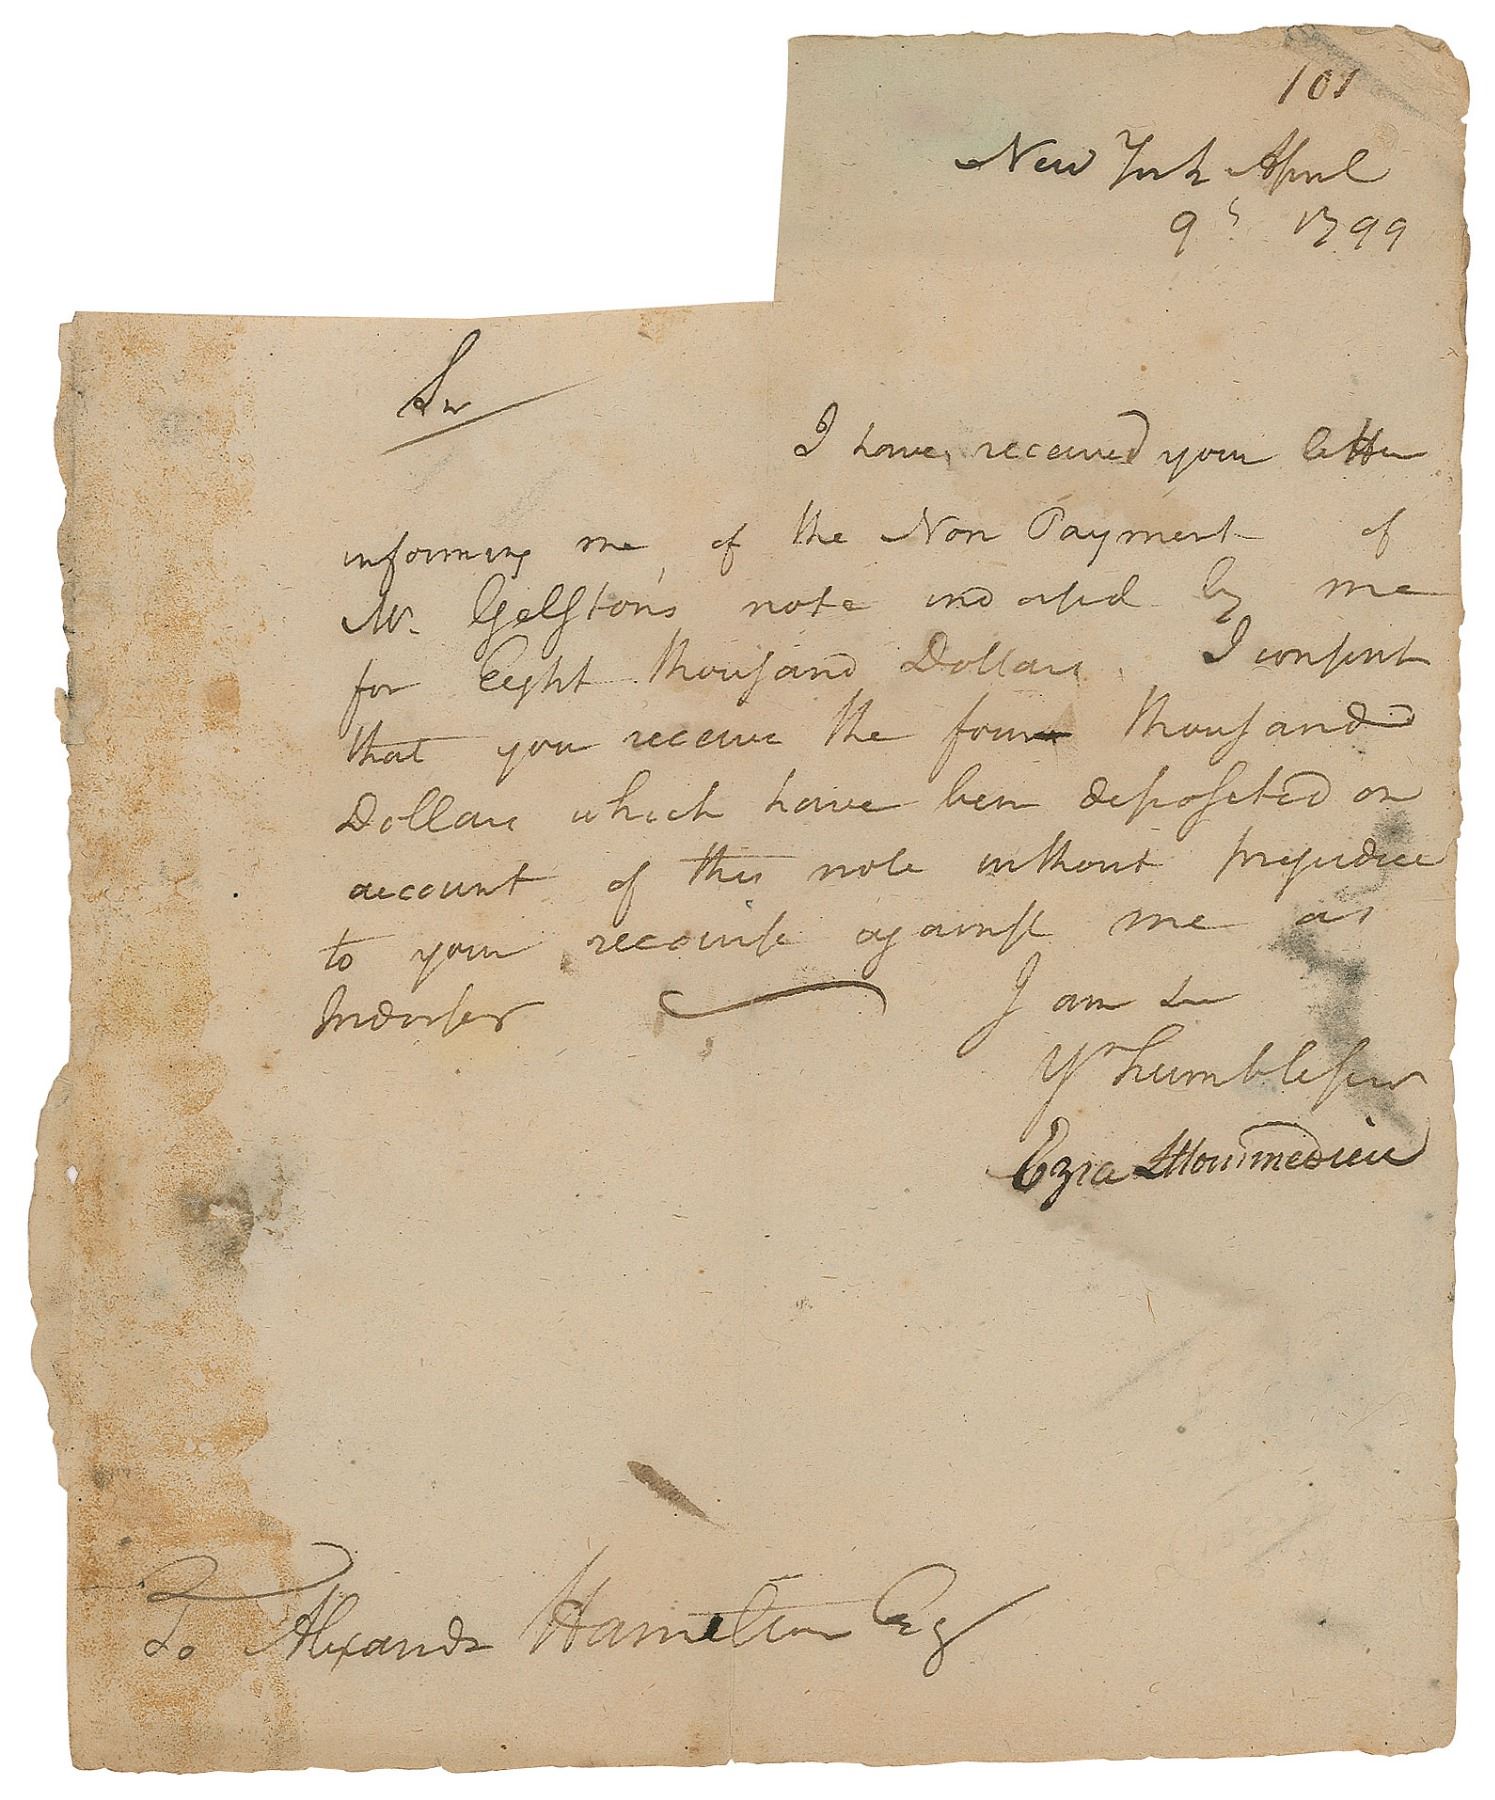 101
New York April
9th 1799
Sir
I have received your letter
informing me, of the Non Payment of
Mr. Gelston's note indorsed by me
for Eight thousand Dollars. I consent
that you receive the four thousand
Dollars which have been deposited on
account of this note without prejudice
to your recourse against me as
Indorser I am Sir
Yr humble serv
Ezra L'Hommedieu
To Alexandr Hamilton Esq